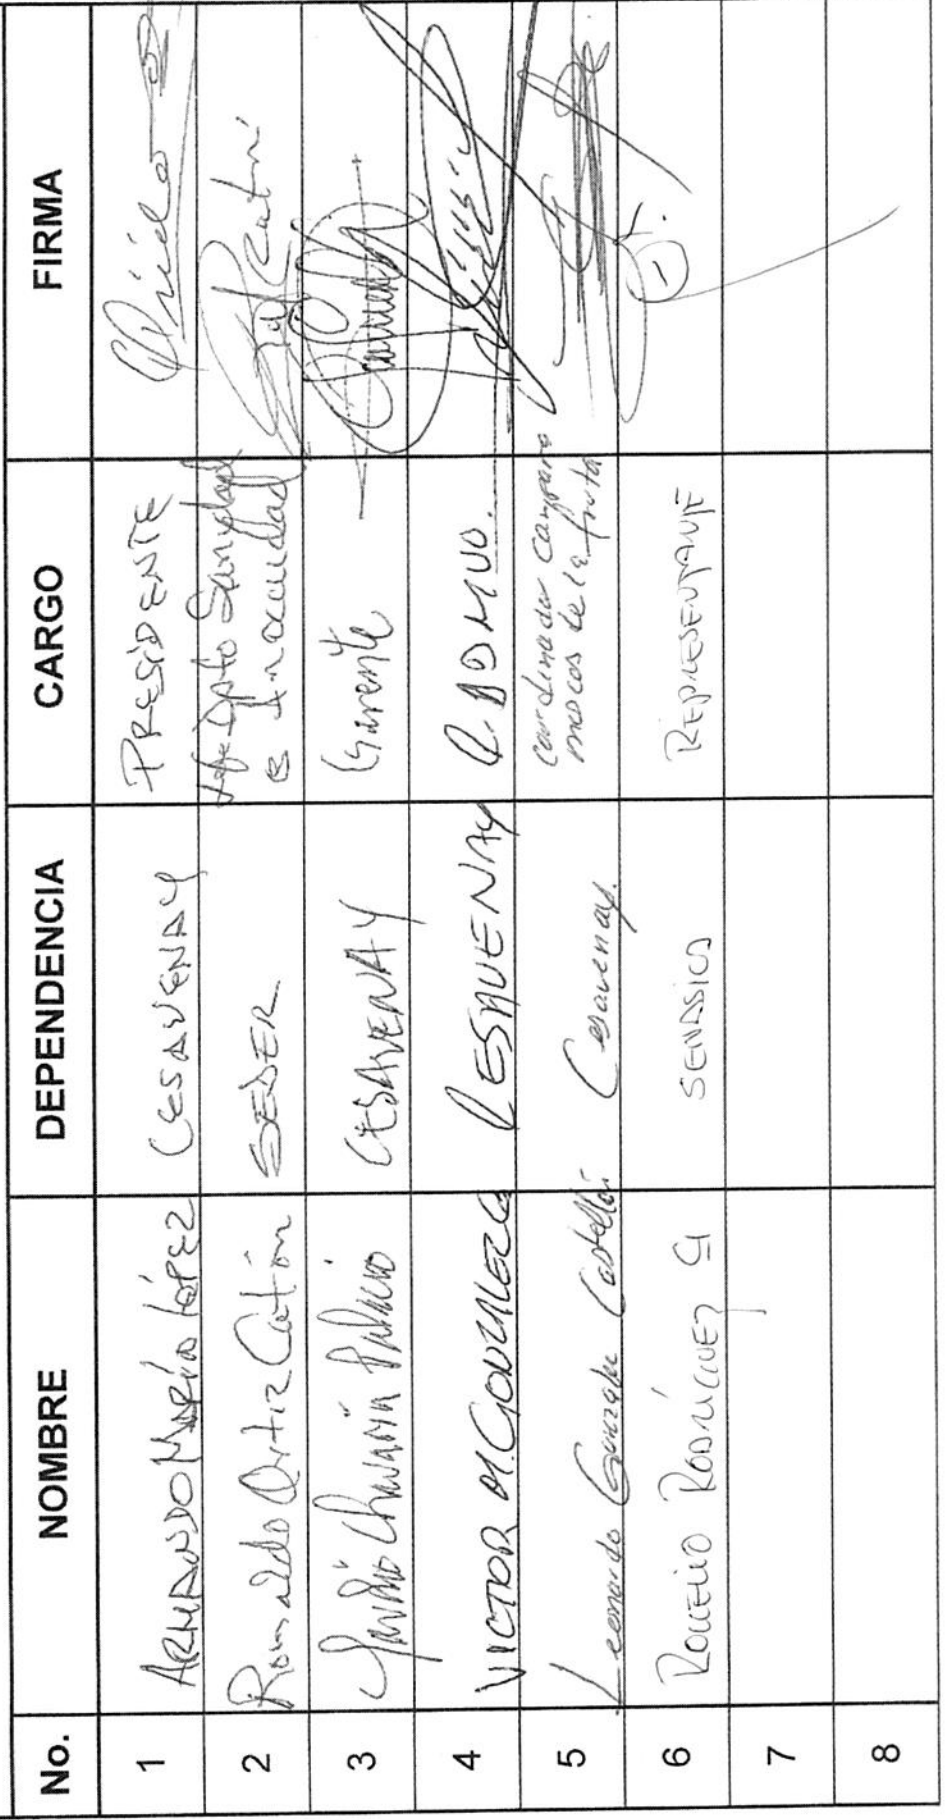 No. NOMBRE DEPENDENCIA CARGO FIRMA
1 ARMANDO MARÍA LÓPEZ CESAVENAY PRESIDENTE
2 Romualdo Ortiz Catón SEDER Jefe Dpto Sanidad
e Inocuidad
3 Chavarín Palacio CESAVENAY Gerente
4 VICTOR M. GONZALEZ CESAVENAY C. ADMVO.
5 Leonardo Gonzalez Castellón Cesavenay. Coordinador campaña
moscas de la fruta
6 ROGELIO RODRÍGUEZ SENASICA REPRESENTANTE
7
8